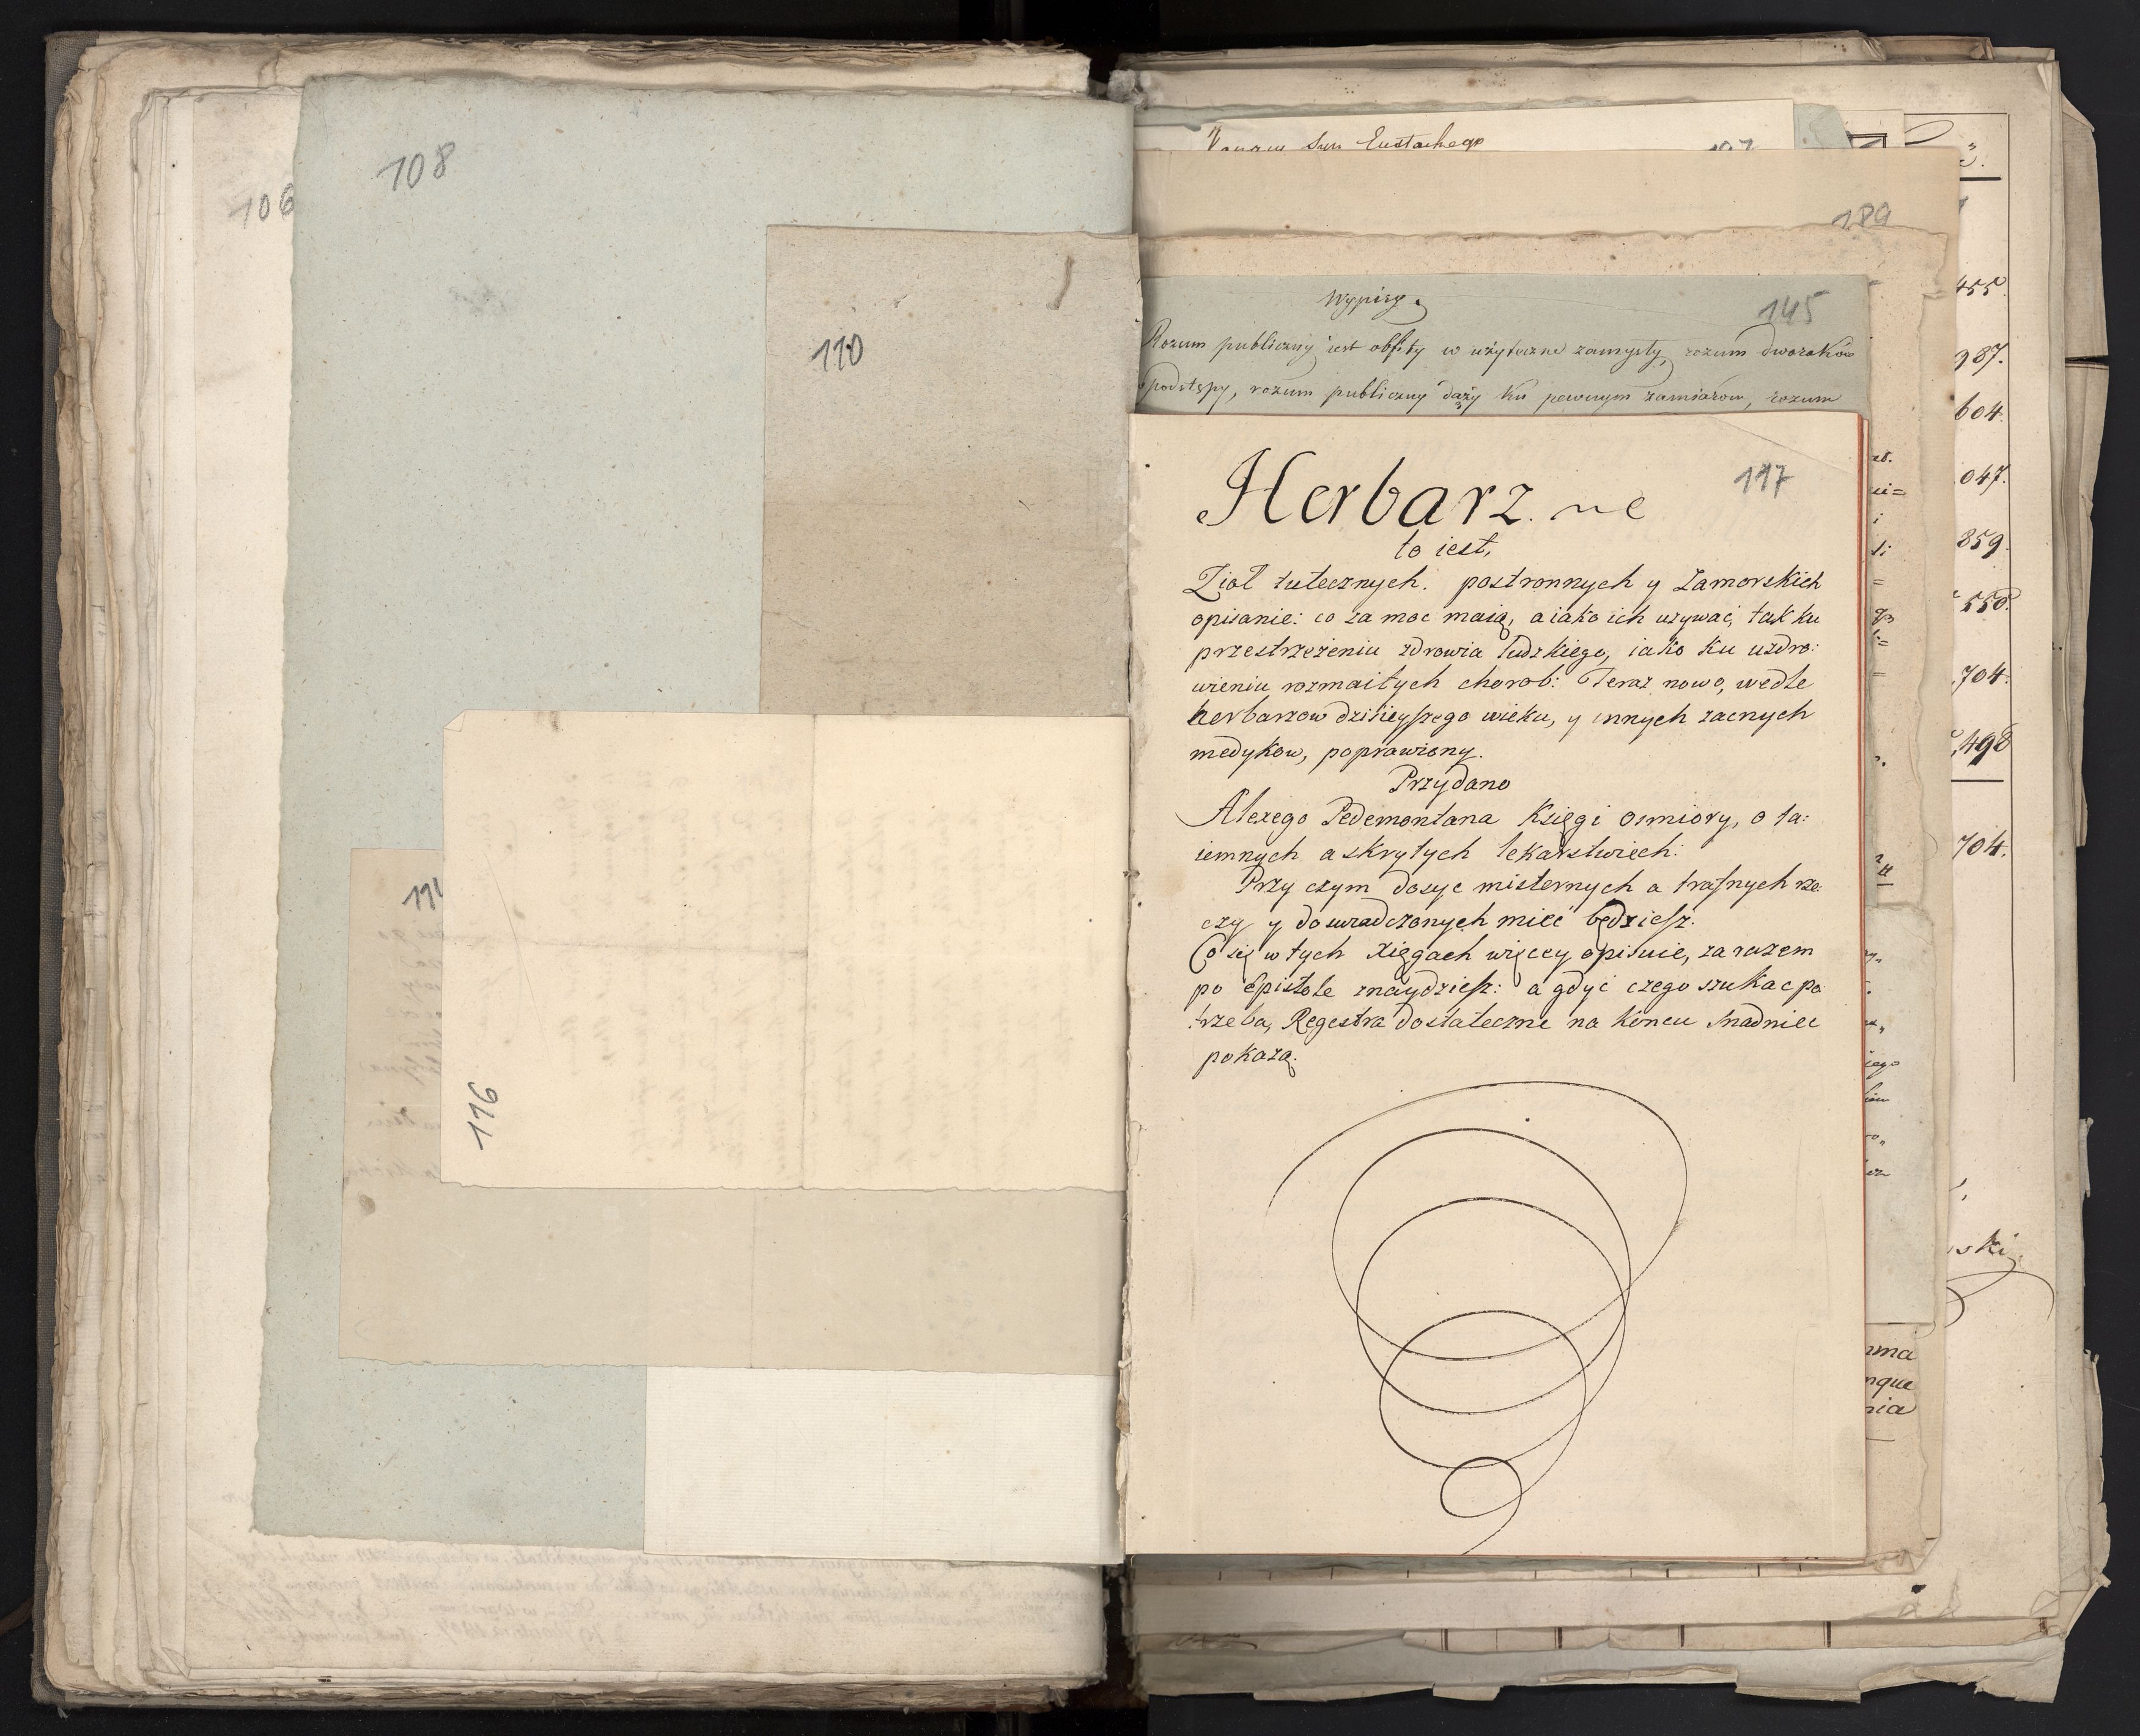 108
106
110
116
syn Eustachego
107
189
Wypisy
145
Rozum publiczny jest obfity w użyteczne zamysły, rozum dworaków
podstępy, rozum publiczny dąży ku pewnym zamiarom, rozum
117
Herbarz.
to iest,
Ziol tutecznych. postronnych y Zamorskich
opisanie: co za moc maią, a iako ich uzywać, tak ku
przestrzeżeniu zdrowia ludzkiego, iako ku uzdro:
wieniu rozmaitych chorob: Teraz nowo, wedle
herbarzow dzisieyszego wieku, y innych zacnych
medykow, poprawiony.
Przydano
Alexego Pedemontana Księgi osmiory, o ta:
iemnych a skrytych lekarstwiech:
Przy czym dosyc misternych a trafnych rze
czy y doswiadczonych mieć będziesz:
Co się w tych xięgach więcey opisuie, zarazem
po Epistole znaydziesz: a gdyć czego szukac po
trzeba, Regestra dostateczne na koncu snadniec
pokazą.
455
987.
604.
047.
859
550.
704.
498
704.